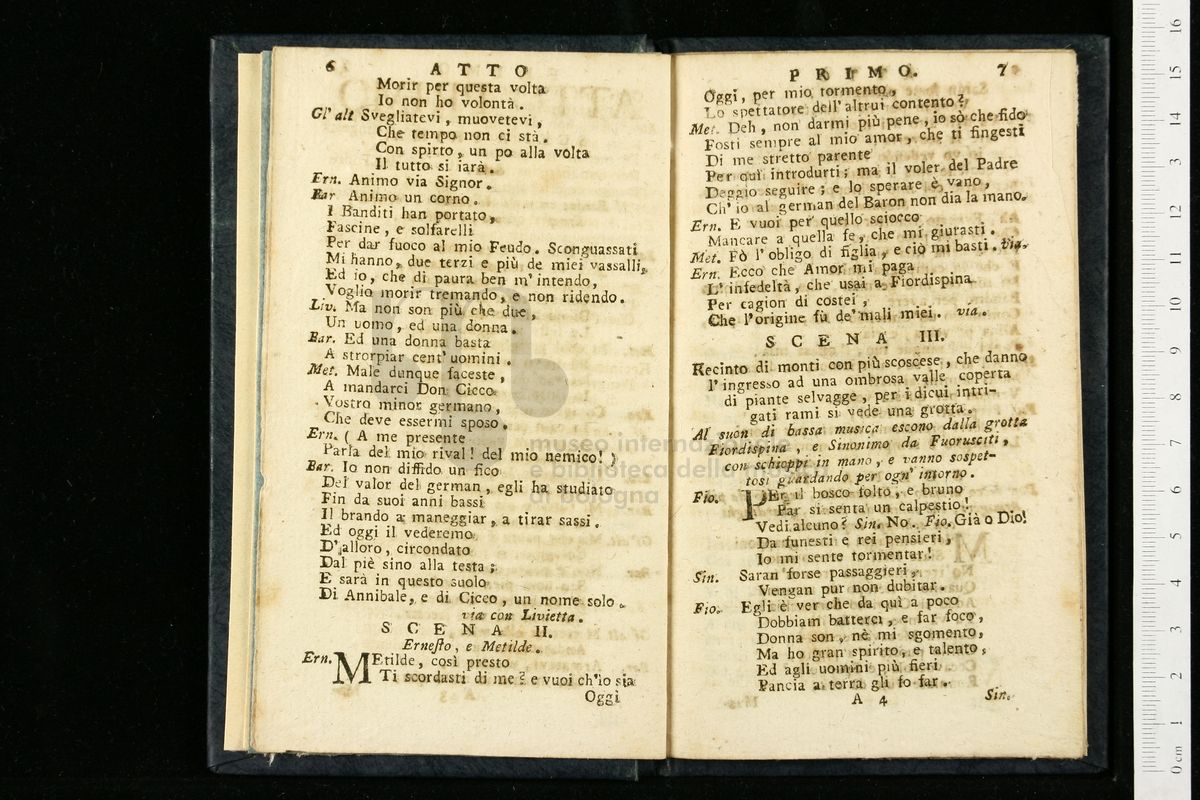 6 ATTO
Morir per questa volta
Io non ho volontà.
Gl' alt Svegliatevi, muovetevi,
Che tempo non ci stà.
Con spirto, un po alla volta
Il tutto si iarà.
Ern. Animo via Signor.
Bar Animo un corno.
I Banditi han portato,
Fascine, e solfarelli
Per dar fuoco al mio Feudo. Sconguassati
Mi hanno, due terzi e più de miei vassalli,
Ed io, che di paura ben m'intendo,
Voglio morir tremando, e non ridendo.
Liv. Ma non son più che due,
Un uomo, ed una donna.
Bar. Ed una donna basta
A strorpiar cent'uomini.
Met. Male dunque faceste,
A mandarci Don Cicco
Vostro minor germano,
Che deve essermi sposo.
Ern. (A me presente
Parla del mio rival! del mio nemico!)
Bar. Io non diffido un fico
Del valor del german, egli ha studiato
Fin da suoi anni bassi
Il brando a maneggiar, a tirar sassi.
Ed oggi il vederemo
D'alloro, circondato
Dal piè sino alla testa;
E sarà in questo suolo
Di Annibale, e di Cicco, un nome solo.
via con Livietta.
SCENA II.
Ernesto, e Metilde.
Ern. MEtilde, così presto
Ti scordasti di me? e vuoi ch'io sia
Oggi
PRIMO. 7
Oggi, per mio tormento,
Lo spettatore dell'altrui contento?
Met. Deh, non darmi più pene, io sò che fido
Fosti sempre al mio amor, che ti fingesti
Di me stretto parente
Per quì introdurti; ma il voler del Padre
Deggio seguire; e lo sperare è vano,
Ch'io al german del Baron non dia la mano.
Ern. E vuoi per quello sciocco
Mancare a quella fe, che mi giurasti.
Met. Fò l'obligo di figlia, e ciò mi basti. Via.
Ern. Ecco che Amor mi paga
L'infedeltà, che usai a Fiordispina
Per cagion di costei,
Che l'origine fù de' mali miei. via.
SCENA III.
Recinto di monti con più scoscese, che danno
l'ingresso ad una ombrosa valle coperta
di piante selvagge, per i dicui intri-
gati rami si vede una grotta.
Al suon di bassa musica escono dalla grotta
Fiordispina, e Sinonimo da Fuorusciti,
con schioppi in mano, e vanno sospet-
tosi guardando per ogn'intorno.
Fio. PEr il bosco folto, e bruno
Par si senta un calpestio!
Vedi alcuno? Sin. No. Fio. Già o Dio!
Da funesti e rei pensieri,
Io mi sente tormentar!
Sin. Saran forse passaggieri,
Vengan pur non dubitar.
Fio. Egli è ver che da quì a poco
Dobbiam batterci, e far foco,
Donna son, nè mi sgomento,
Ma ho gran spirito, e talento,
Ed agli uomini più fieri
Pancia a terra gli fo far.
A 4 Sin.
museo internazionale
e biblioteca della musica
di bologna
0 cm 1 2 3 4 5 6 7 8 9 10 11 12 13 14 15 16